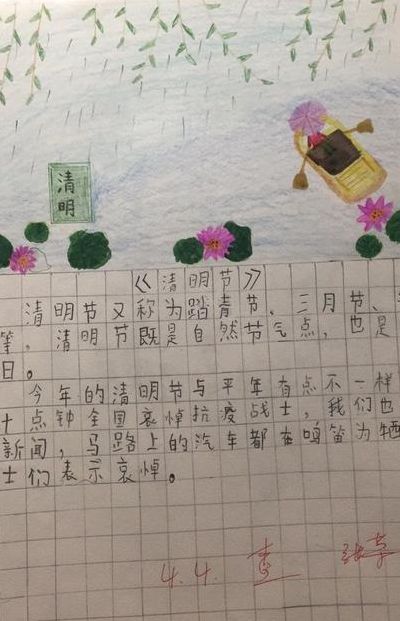 清
明
《清明节》
清明节又称为踏青节、三月节、
等。清明节既是自然节气点，也是
日。
今年的清明节与平年有点不一样
十点钟全国哀悼抗疫战士，我们也
新闻，马路上的汽车都在鸣笛为牺
士们表示哀悼。
4.4. 查